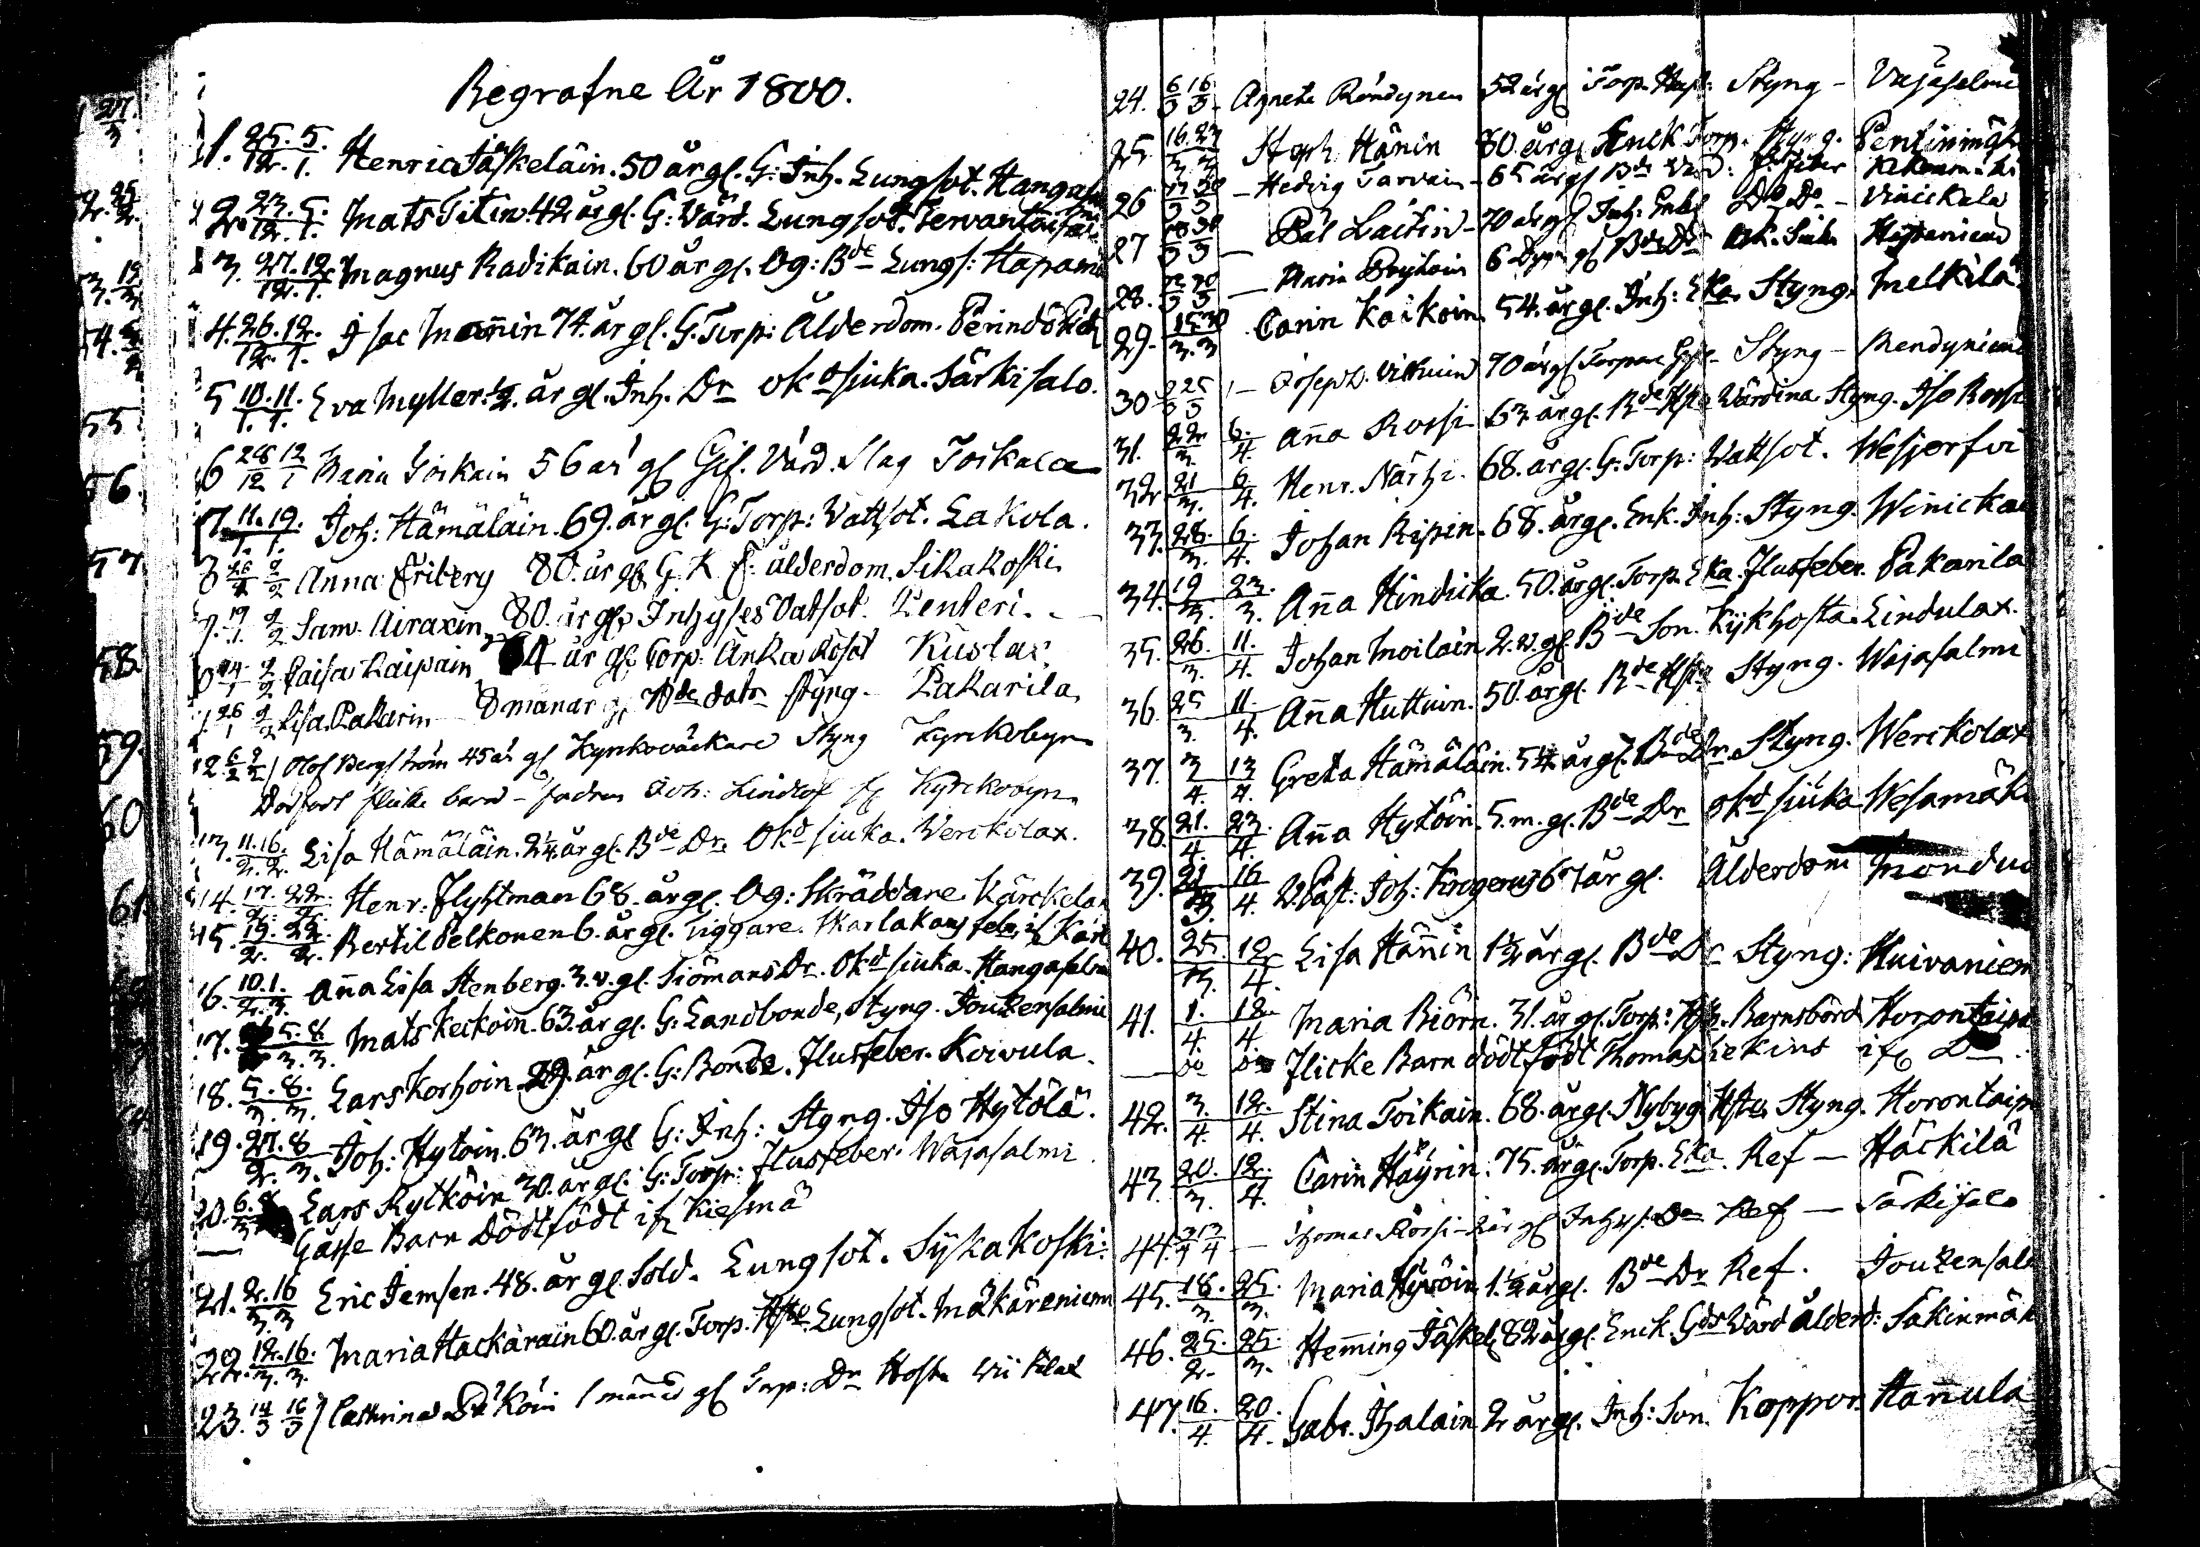 Begrafne År 1800.
1. 25/12. 5/1. Henric Jäskeläin. 50 år gl. G: Inh. Lungsot. Hangas
2. 23/12. 5/1. Mats Titin. 42 år gl. G: Värd. Lungsot. Tervantaipal
3. 27/12. 12/1. Magnus Radikain. 60 år gl. Og: Bde Lungs: Hapani
4. 26/12. 12/1. Isac Mannin 74. år gl. G. Torp: Ålderdom.
5 10/1. 11/1. Eva Myller. ½. år gl. Inh. Dr okd siuka. Särkisalo.
6 28/12 12/1 Maria Toikain 56 år gl Gif. Värd. Slag Toikala
7. 11/1. 19/1. Joh: Hämäläin. 69. år gl. G: Torp: Vattsot. Lakola.
8 26/1 2/2 Anna Friberg 80. år gl. G. K. ålderdom. Sikakoski
9. 19/1 2/2 Sam. Airaxin, 80. år gl. Inhyses Vatsot. Penteri.
10 24/1 2/2 Caisa Kaipain, 64 år gl. Torp: Änka Rosot Kustas
11 26/1 2/2 Lisa Pakarin 8 månar gl Bde dotr styng. Pakarila
12 6/2 9/2 Olof Bergström 45 år gl Kyrkoväckare Styng Kyrckobyn
Dödfödt flicke barn - fadren Joh: Lindlöf if Kyrckobyn
13. 11/2. 16/2. Lisa Hämäläin. 2¼. år gl. Bde Dr. Okd siuka. Verckolax.
14. 17/2. 22/2. Henr. Flyktman 68. år gl. Og: Skräddare Kärckelax
15. 19/2. 22/2. Bertil Pelkonen 6. år gl. Tiggare. Skarlakans feb. if Kär
16. 10/2. 1/3. Anna Lisa Stenberg. 3. v. gl. Siömans Dr. Okd siuka. Hangasalm
17. 5/3. 8/3. Mats Keckoin. 63. år gl. G: Landbonde, Styng. Joukensalmi
18. 5/3. 8/3. Lars Korhoin 29. år gl. G: Bonde. Flusfeber. Koivula.
19. 27/2. 8/3. Joh: Hytöin. 63. år gl G: Inh: Styng. Iso Hytölä.
20. 6/3. 8 Lars Kylköin 30. år gl. G: Torp: Flusfeber. Wajasalmi
— Gåsse Barn Dödtfödt if Kiesmä
21. 2/3. 16/3 Eric Jemsen. 48. år gl. Sold. Lungsot. Sykäkoski.
22. 12/3. 16/3. Maria Hackarain 60. år gl. Torp. Hstr. Lungsot. Mäkäreniem
23. 14/3 16/3 Cathrina 1 månad gl Torp: Dr Hosta
24. 6/3 16/3 Agneta Röndynen 52 år gl Torp. Hust: Styng - Vajasalmi
25 16/3 23/3 Steph. Hänin 80. år gl. Enck Torp. Styng. Pentinmäk
26 17/3 30/3 — Hedvig Tarvain - 65 år gl Bde
27 18/3 30/3 — Pål Laitin - 70 år gl Inh: Enkl Do Do - Vinickala
28. 22/3 30/3 — Maria 6 Bde Dr
29. 15/3. 30/3 Carin Kaikoin 54. år gl. Inh: Eka. Styng. Melkilä
30 2/3 25/3 — Joseph. Vitkuin 70 år gl Torpare Styng - Rendyniemi
31. 22/3. 6/4 Anna Rossi 63 år gl. Bde Hstr Värdina Styng. Iso Rossi
32 21/3. 6/4. Henr. Närhi. 68. år gl. G: Torp: Vattsot. Wesjerfvi
33. 28/3. 6/4. Johan Ripin. 68. år gl. Enk. Inh: Styng. Winicka
34. 19/3. 23/3. Anna Hindicka. 50. år gl. Torp. Eka. Flusfeber. Pakarila
35. 26/3. 11/4. Johan Moilain 2. v. gl. Bde Son. Kykhosta. Lindulax.
36. 25/3. 11/4. Anna Huttuin. 50. år gl. Bde Hstr Styng. Wajasalmi
37. 3/4. 13/4. Greta Hämäläin. 54. år gl. Bde Dr. Styng. Werckolax
38 21/4. 23/4. Anna Hytöin. 5. m. gl. Bde Dr okd siuka Wesamäk
39. 21/3. 16/4. V. Past: Joh: Krogerus 67 år gl. Ålderdom
40. 25/3. 12/4. Lisa Hännin 1½ år gl. Bde Dr Styng: Huivaniem
41. 1/4. 12/4. Maria Biörn. 31. år gl. Torp: Hstr. Barnsbörd Horontaipa
— do do Flicke Barn dödtfödt Thomas Kiekins if Do
42. 3/4. 12/4. Stina Toikain. 68. år gl. Nybyg. Hstr. Styng. Horontaip
43. 20/3. 12/4. Carin Häyrin. 75. år gl. Torp. Eka. Ref — Häckilä
44. Thomas Rossi - 2 år gl Inhys. Ref — Särkisalo
45. 18/3. 25/3. Maria 1½ år gl. Bde Dr Ref. Joukensal
46. 25/2. 25/3. Hemming Jäskel: 82 år gl. Enck. Gds Värd ålderd: Säkinmäk
47. 16/4. 20/4. Gabr. Ihalain 2 år gl. Inh: Son. Koppor. Hannula
27/3.
25/2.
53. 19/3
54.
55.
56.
57.
58.
59.
60
61.